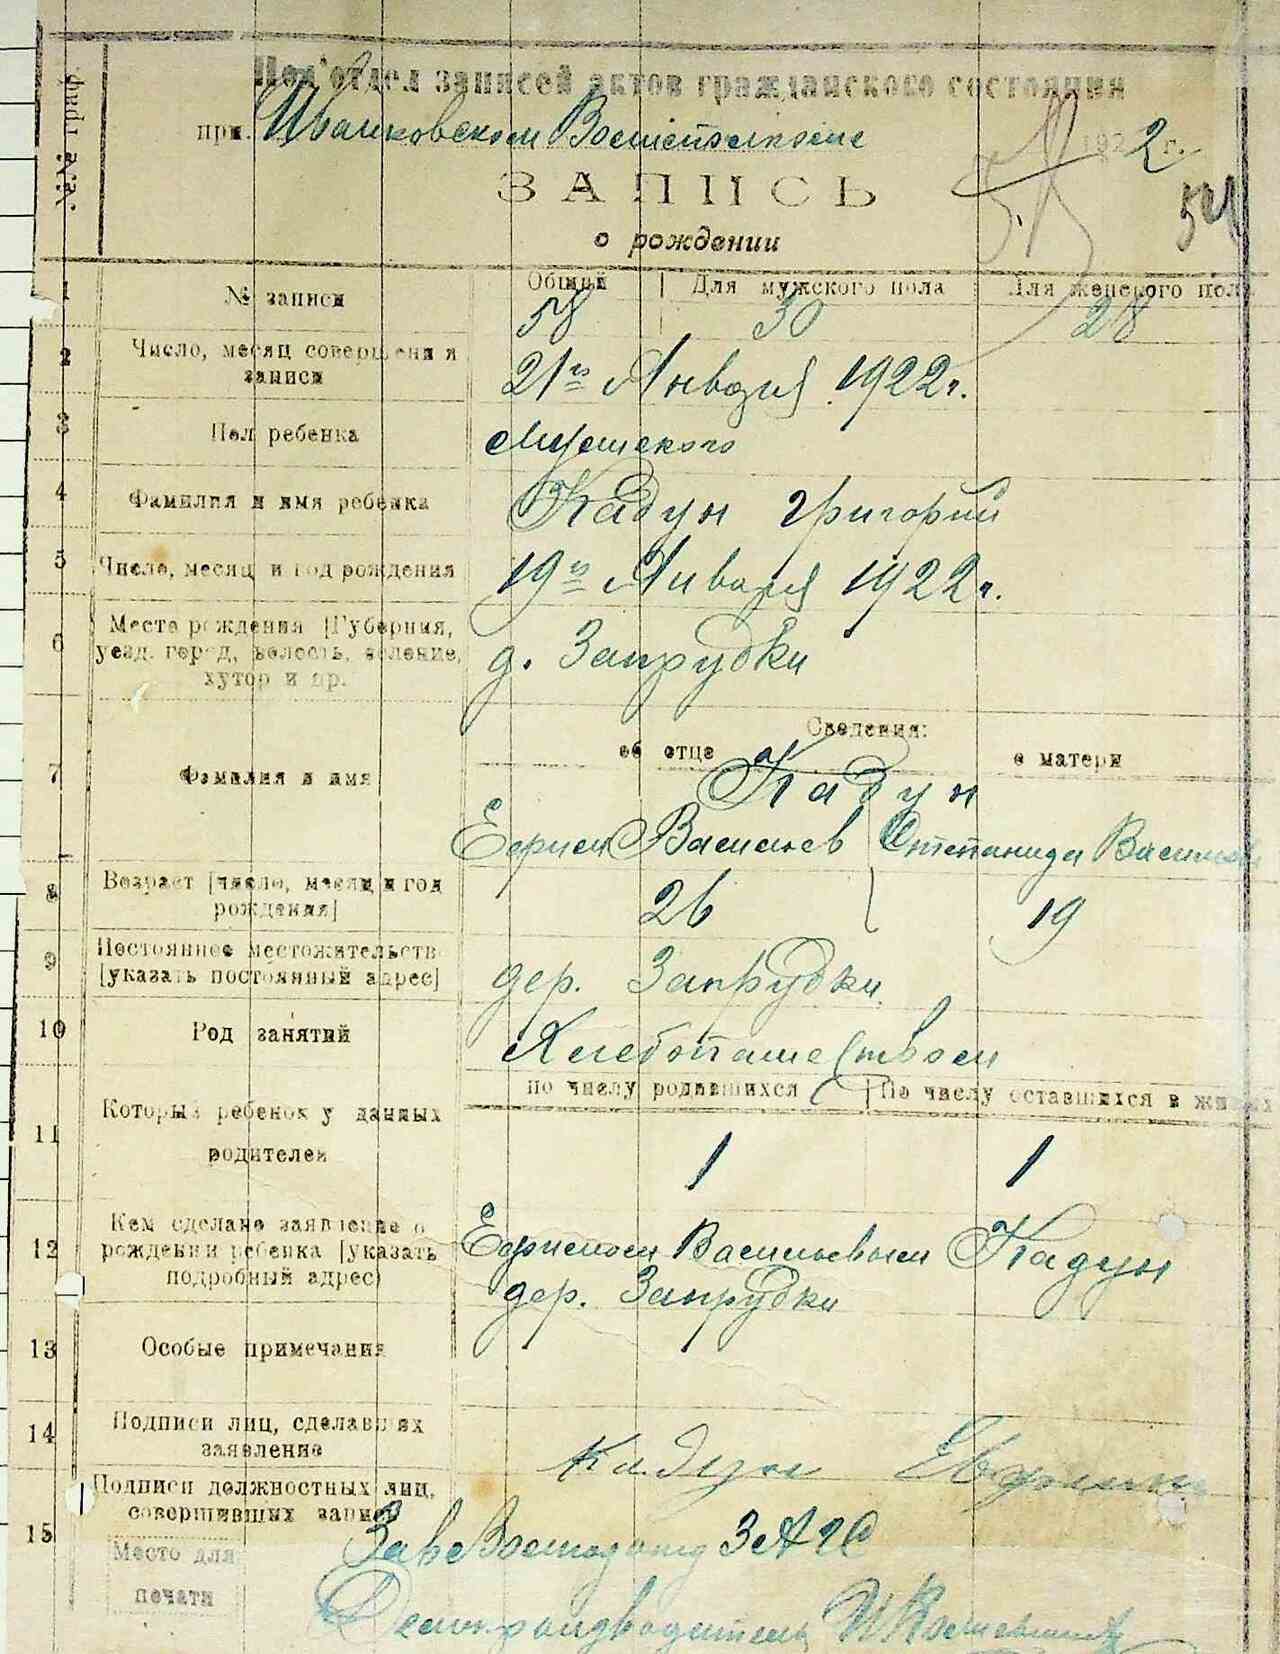 №№ граф.
Под'отдел записей актов гражданского состояния
при. Иванковском 1922 г.
ЗАПИСЬ
о рождении
54
1 № записи Общий Для мужского пола Для женского пол
58 30 28
2 Число, месяц совершения записи 21го Января 1922 г.
3 Пол ребенка Мужского
4 Фамилия и имя ребенка Кадун Григорий
5 Число, месяц и год рождения 19го Января 1922 г.
6 Место рождения [Губерния, уезд, город, волость, селение, хутор и пр. д. Запрудки
Сведения:
об отце о матери
7 Фамилия и имя Кадун
Ефрем Васильев Степанида
8 Возраст [число, месяц и год рождения] 26 19
9 Постоянное местожительств [указать постоянный адрес] дер. Запрудки
10 Род занятий Хлебопашеством
11 Который ребенок у данных родителей по числу родившихся По числу оставшихся в живых
1 1
12 Кем сделано заявление о рождении ребенка [указать подробный адрес) Ефремом Васильевым Кадун
дер. Запрудки
13 Особые примечания
14 Подписи лиц, сделавших заявление Кадун
15 Подписи должностных лиц, совершивших запись
Место для печати ЗАГС
Делопроизводитель